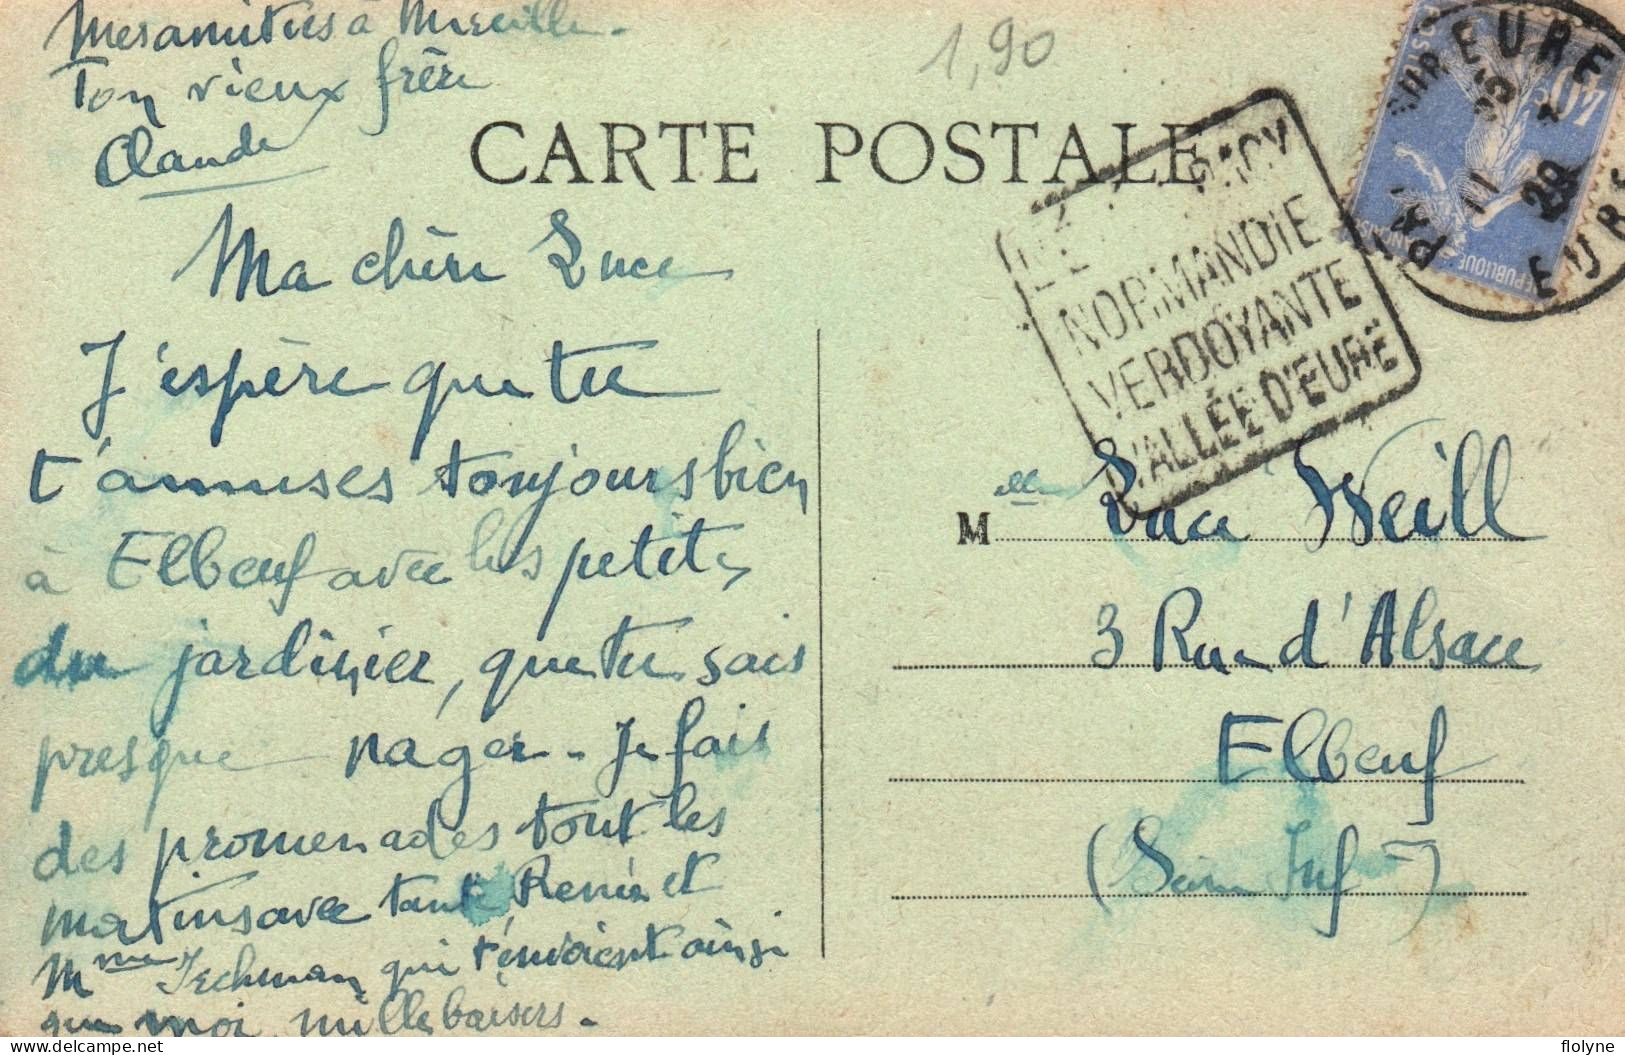 Mes amitiés à Mireille.
Ton vieux frère
Claude
1,90
CARTE POSTALE
PACY
NORMANDIE
VERDOYANTE
VALLÉE D'EURE
SUR EURE
EURE
POSTES
40c
REPUBLIQUE FRANÇAISE
Ma chère Luce
J'espère que tu
t'amuses toujours bien
à Elbeuf avec les petits
du jardinier, que tu sais
presque nager. Je fais
des promenades tout les
matins avec tante Renée et
Mme qui t'envoient ainsi
que moi mille baisers.
Melle Luce Weill
3 Rue d'Alsace
Elbeuf
(Seine Inf)
flolyne
© delcampe.net